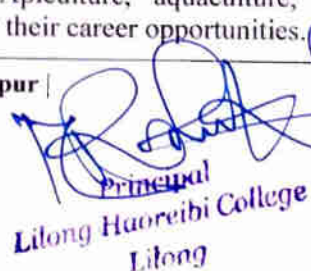 Apiculture, aquaculture,
their career opportunities.
pur |
Principal
Lilong Haoreibi College
Lilong